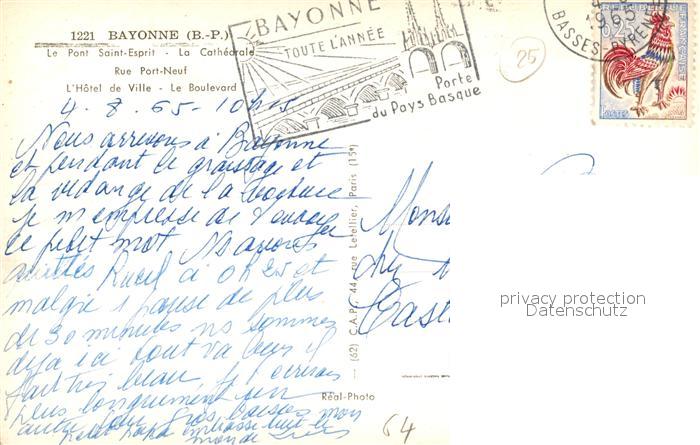 1221 BAYONNE (B.-P.)
Le Pont Saint-Esprit - La Cathédrale
Rue Port-Neuf
L'Hôtel de Ville - Le Boulevard
BAYONNE
TOUTE L'ANNÉE
Porte
du Pays Basque
1965
BASSES-PYRENEES
POSTES
25
4.8.65-10h15
Nous arrivons à Bayonne
et pendant le graissage et
la vidange de la voiture
je m'empresse de t'envoyer
ce petit mot Ns avons
quittés Rueil à 0h25 et
malgré 1 pause de plus
de 30 minutes ns sommes
déjà ici tout va bien il
fait très beau, je t'écrirai
plus longuement une
autre fois Gros baisers mon
papa embrasse tout le
monde
Mons
du
Cas
(62) C.A.P. 44, rue Letellier, Paris (15e)
Réal-Photo
64
privacy protection
Datenschutz